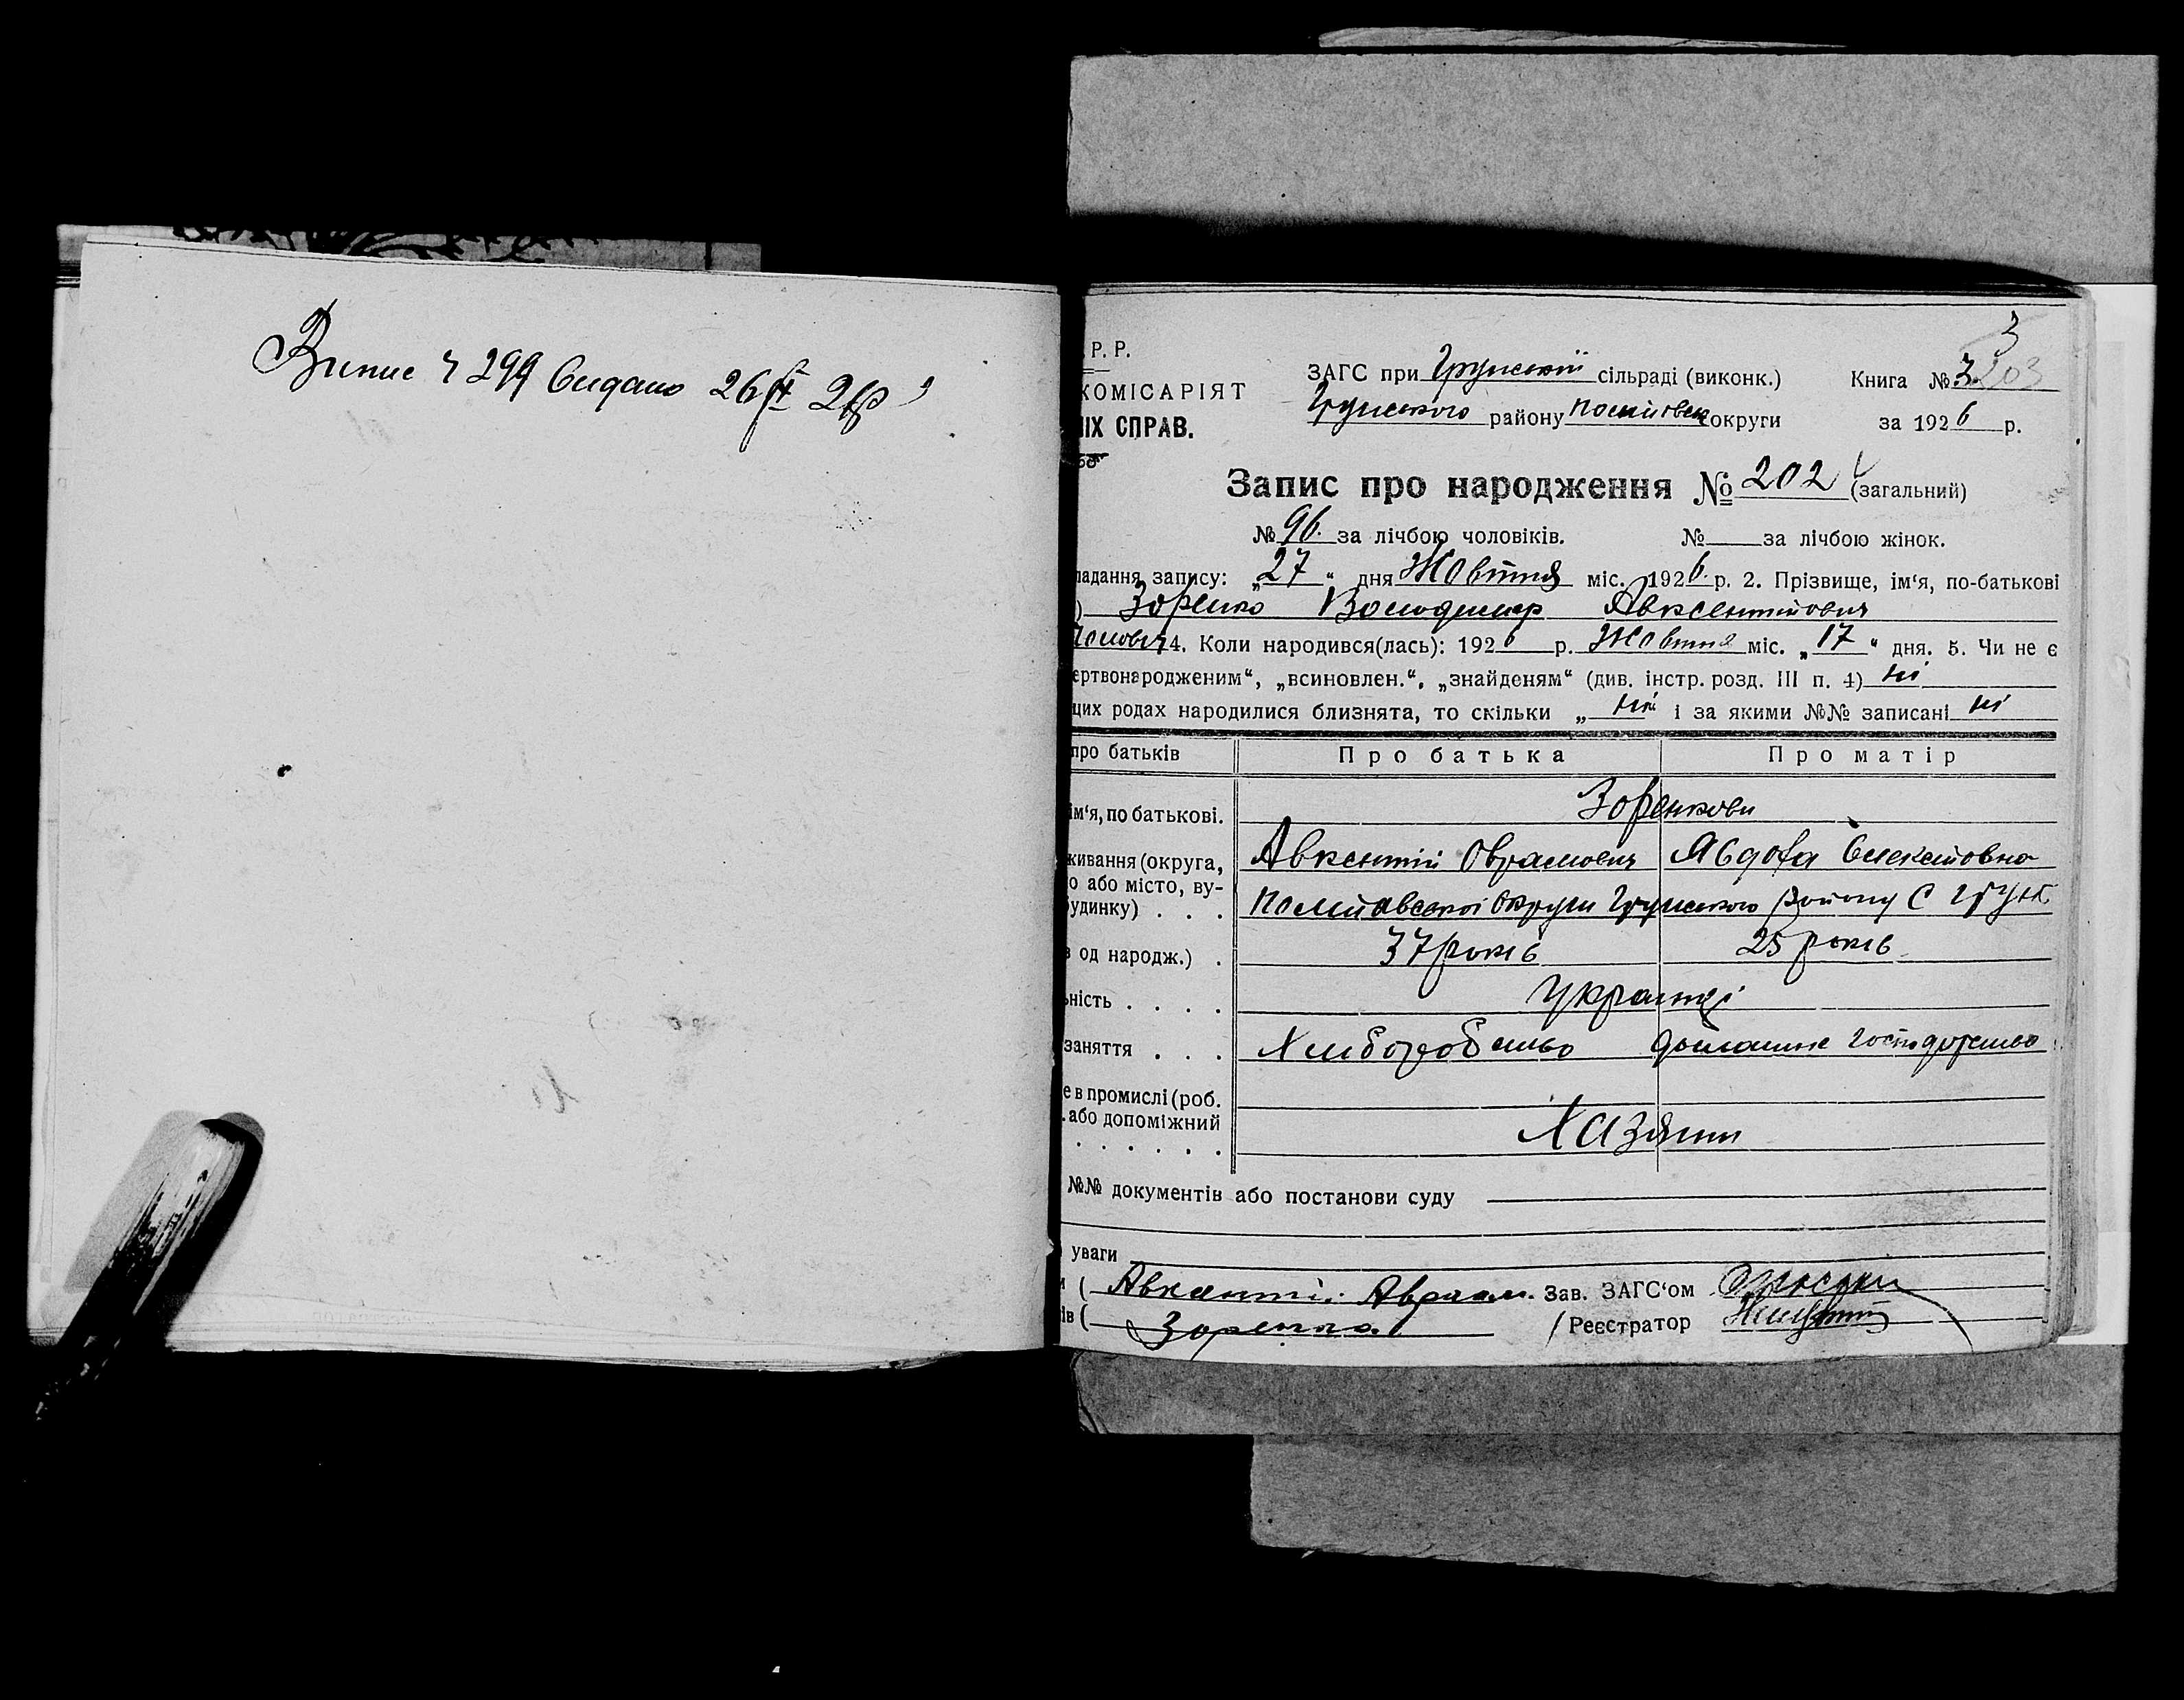 Випис ч 299 видано 26
3
. Р. Р.
КОМІСАРІЯТ
ІХ СПРАВ.
ЗАГС при Грунській сільраді (виконк.)
Книга № 3 203
Грунського району Полтавськ округи
за 1926 р.
Запис про народження № 202 (загальний)
№ 96. за лічбою чоловіків. № — за лічбою жінок.
ладання запису: „27“ дня Жовтня міс. 1926 р. 2. Прізвище, ім‘я, по-батькові
) Зоренко Володимир Авксентійович
4. Коли народився(лась): 1926 р. Жовтня міс. „17“ дня. 5. Чи не є
ертвонародженим“, „всиновлен.“, „знайденям“ (див. інстр. розд. III п. 4) ні
цих родах народилися близнята, то скільки „ ні “ і за якими №№ записані ні
про батьків Про батька Про матір
ім‘я, по батькові. Зоренкови
живання (округа, Авксентій Оврамович Явдоха Олексіовна
о або місто, ву-
удинку) . . . Полтавської Округи Грунського Району С Грунь
в од народж.) . 37 років 25 років
ьність . . . . Українці
заняття . . . Хліборобство домашнє господарство
е в промислі (роб.
. або допоміжний Хазяїни
. . . . . .
№№ документів або постанови суду
уваги
и ( Авксентій Авраам. Зав. ЗАГС‘ом
ів ( Зоренко Реєстратор